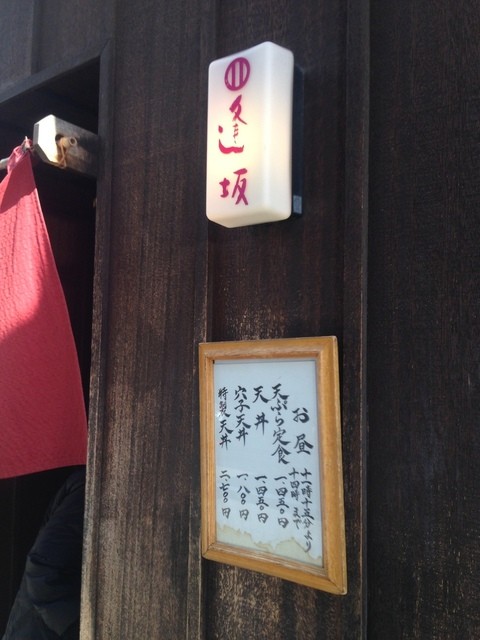 逢坂
お昼 十一時十五分より
十四時まで
天ぷら定食 一、四五〇円
天丼 一、四五〇円
穴子天丼 一、八〇〇円
特製天丼 二、七〇〇円